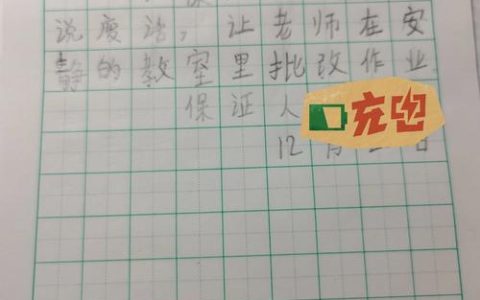 说废话，让老师在安
静的教室里批改作业
保证人
充电
12月 日